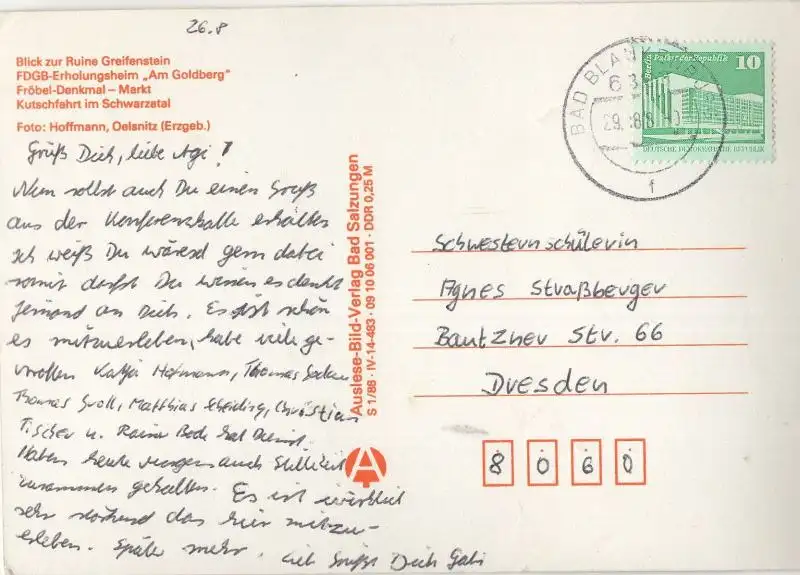 26.8
Blick zur Ruine Greifenstein
FDGB-Erholungsheim „Am Goldberg"
Fröbel-Denkmal – Markt
Kutschfahrt im Schwarzatal
Foto: Hoffmann, Oelsnitz (Erzgeb.)
Grüß Dich, liebe Agi!
Nun sollst auch Du einen Gruß
aus der Konferenzhalle erhalten
Ich weiß Du wärest gern dabei
somit darfst Du wissen es denkt
jemand an Dich. Es ist schön
es mitzuerleben, habe viele ge-
troffen Katja Hofmann, Thomas
Thomas Groll, Matthias Scheiding, Christian
Tischer u. Rainer Bode hat Dienst.
Haben heute morgen auch Stille Zeit
zusammen gehalten. Es ist wirklich
sehr das hier mitzu-
erleben. Später mehr. Lieb Grüßt Dich Gabi
Auslese-Bild-Verlag Bad Salzungen
S 1/86 · IV-14-483 · 09 10 06 001 · DDR 0,25 M
A
BAD BLANKENBURG
29.-8.8
f
Berlin Palast der Republik
10
DEUTSCHE DEMOKRATISCHE REPUBLIK
Schwesternschülerin
Agnes Straßberger
Bautzner Str. 66
Dresden
8 0 6 0